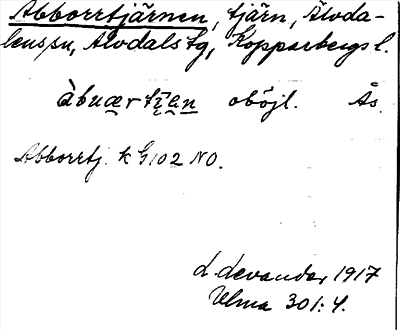 Abborrtjärnen, tjärn, Älvda-
lens sn, Älvdals tg, Kopparbergs l.
àbuærtīan oböjl. Ås.
Abborrtj. k G102 NO.
L. Levander 1917
Ulma 301:4.